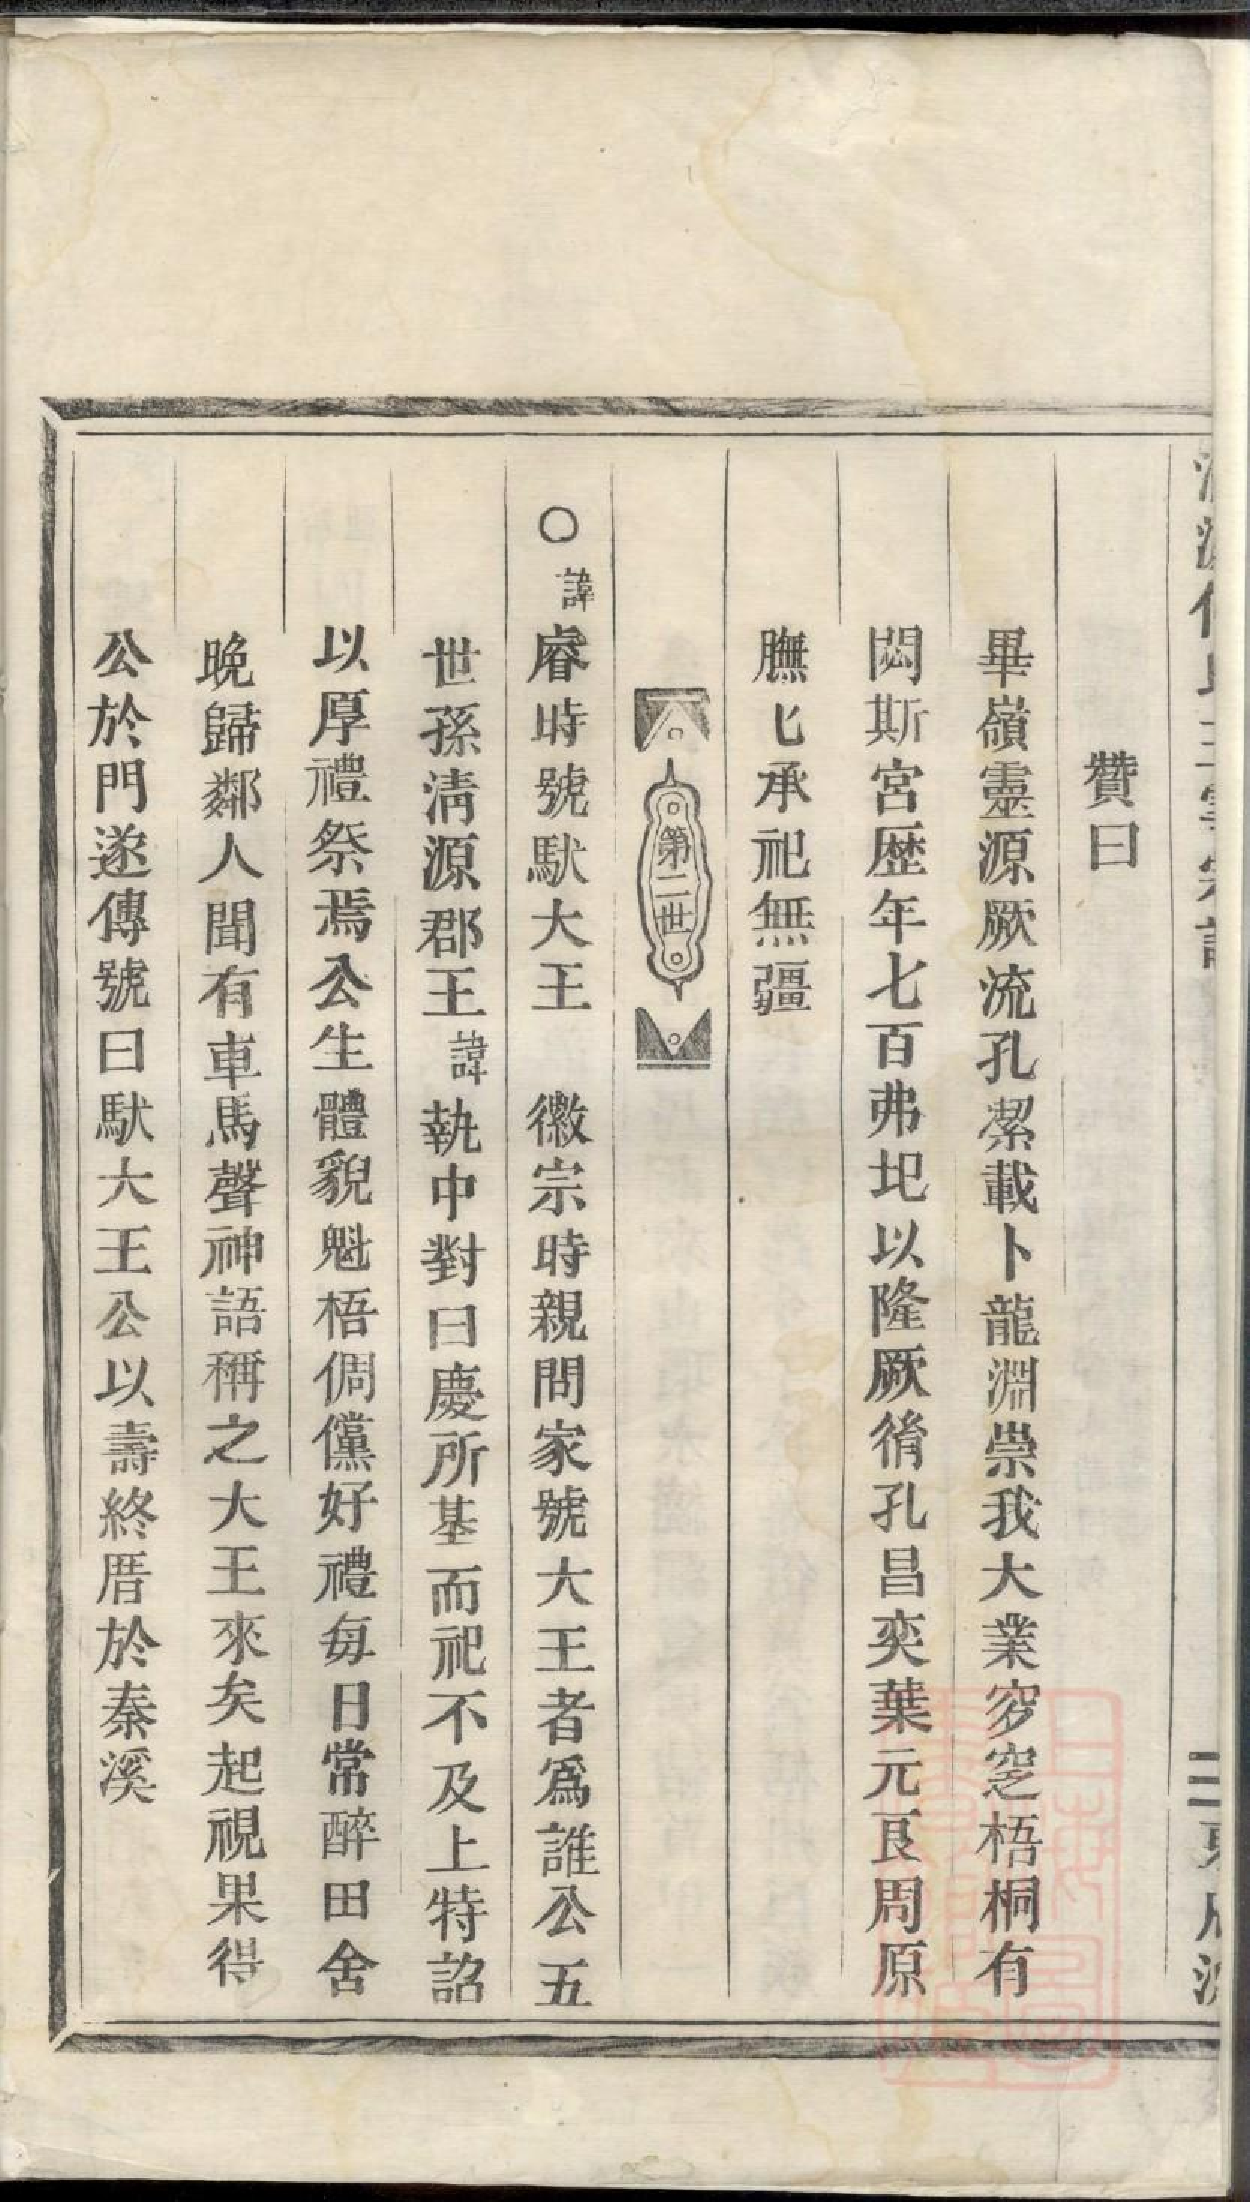 贊曰
畢嶺靈源厥流孔潔載卜龍淵崇我大業窈窕梧桐有
閟斯宮歴年七百弗圯以隆厥後孔昌奕葉元良周原
膴匕承祀無疆
第二世
○諱睿時號馱大王 徽宗時親問家號大王者爲誰公五
世孫清源郡王諱執中對曰慶所基而祀不及上特詔
以厚禮祭焉公生體貌魁梧倜儻好禮每日常醉田舍
晚歸鄰人聞有車馬聲神語稱之大王來矣起視果得
公於門遂傳號曰馱大王公以壽終厝於秦溪